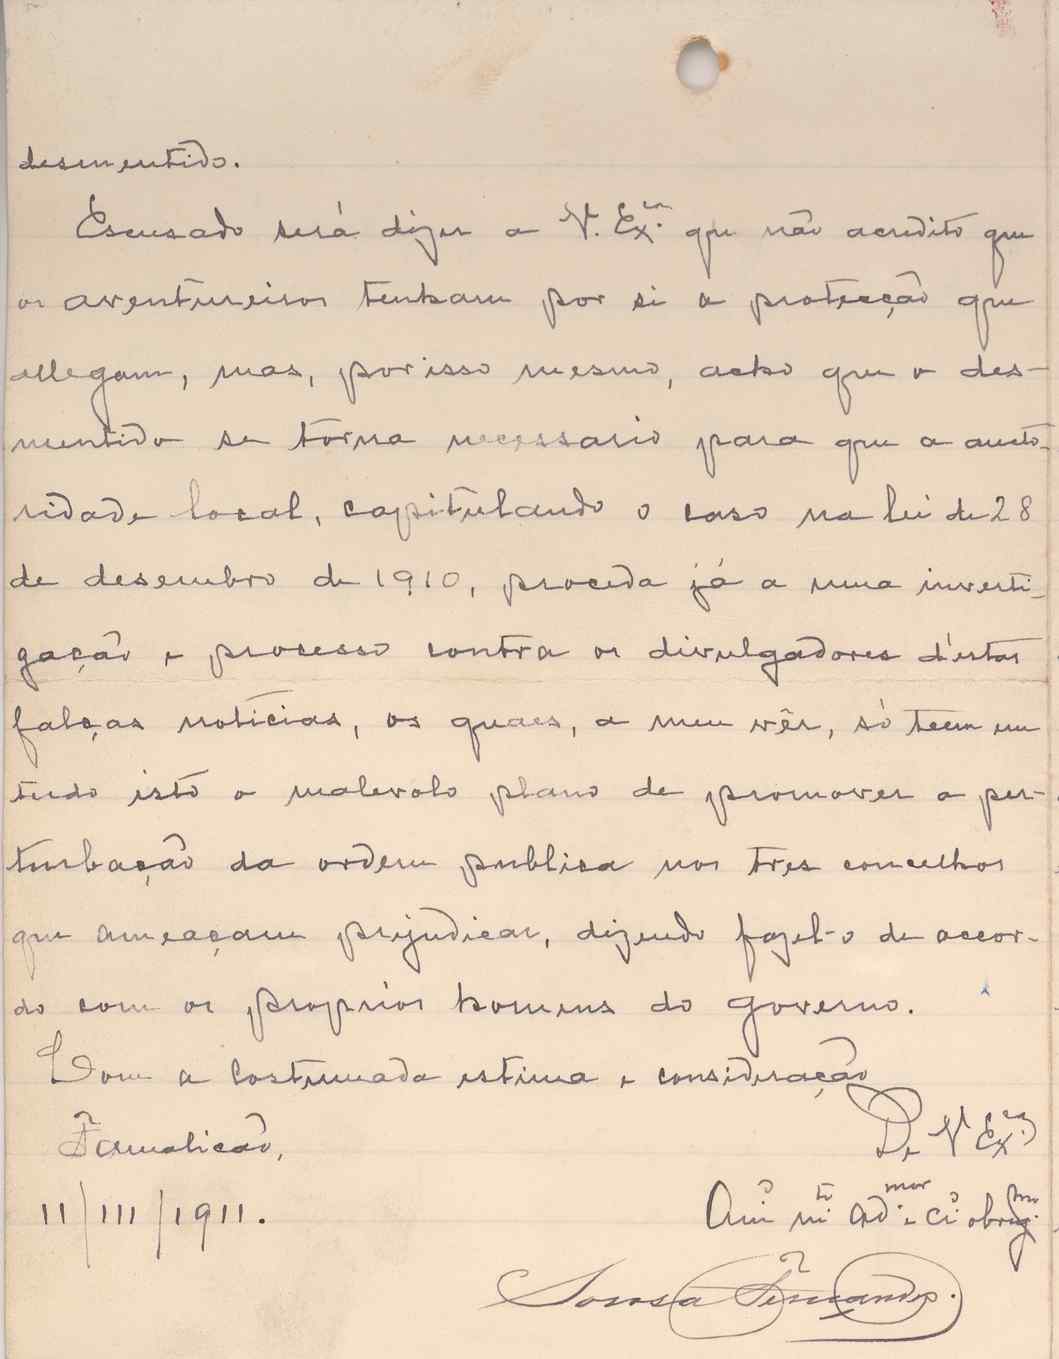 desmentido.
Escusado será dizer a V. Ex.ª que não acredito que
os aventureiros tenham por si a protecção que
allegam, mas, por isso mesmo, acho que o des-
mentido se torna necessario para que a aucto-
ridade local, capitulando o caso na lei de 28
de desembro de 1910, proceda já a uma investi-
gação e processo contra os divulgadores d'estas
falças notícias, os quaes, a meu vêr, só teem em
tudo isto o malevolo plano de promover a per-
turbação da ordem publica nos tres concelhos
que ameaçam prijudicar, dizendo fazel-o de accor-
do com os proprios homens do governo.
Com a costumada estima e consideração
De V Ex.ª
Famalicão,
Am.º m.to ad.mor e c.º obrig.mo
11/III/1911.
Sousa Fernandes.